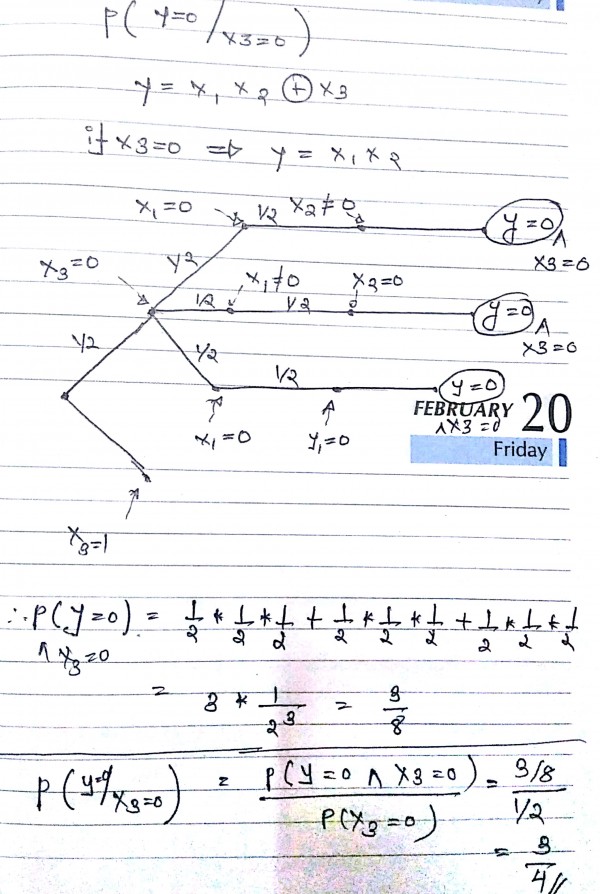 P( y=0 / x3=0 )
y = x1 x2 ⊕ x3
if x3=0 ⇒ y = x1 x2
x1=0 1/2 x2≠0 y=0 ∧ x3=0
x3=0 1/2 x1≠0 x2=0
1/2 1/2 y=0 ∧ x3=0
1/2 1/2 1/2 y=0
∧ x3=0
x1=0 y1=0
FEBRUARY 20
Friday
x3=1
∴ P(y=0 ∧ x3=0) = 1/2 * 1/2 * 1/2 + 1/2 * 1/2 * 1/2 + 1/2 * 1/2 * 1/2
= 3 * 1/2^3 = 3/8
P( y=0/x3=0 ) = P(y=0 ∧ x3=0) / P(x3=0) = 3/8 / 1/2
= 3/4 //